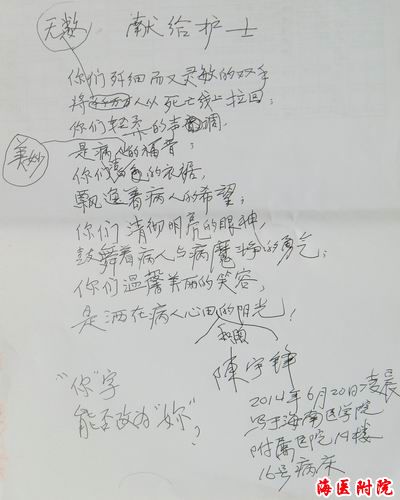 无数
献给护士
你们纤细而又灵敏的双手
将人从死亡线上拉回;
你们轻柔的声调,
美妙
是病人的福音;
你们白色的衣裾,
飘逸着病人的希望;
你们清彻明亮的眼神,
鼓舞着病人与病魔斗争的勇气;
你们温馨美丽的笑容,
是洒在病人心田的阳光!
和煦
陳宇锋
“你”字
能否改为“妳”?
2014年6月20日凌晨
写于海南医学院
附属医院19楼
16号病床
海医附院